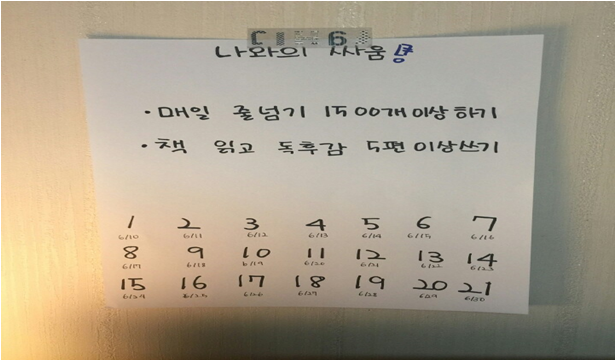 나와의 싸움
· 매일 줄넘기 1500개 이상 하기
· 책 읽고 독후감 5편 이상 쓰기
1 2 3 4 5 6 7
6/10 6/11 6/12 6/13 6/14 6/15 6/16
8 9 10 11 12 13 14
6/17 6/18 6/19 6/20 6/21 6/22 6/23
15 16 17 18 19 20 21
6/24 6/25 6/26 6/27 6/28 6/29 6/30